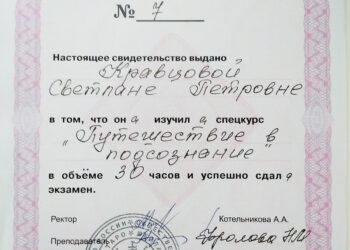 № 7
Настоящее свидетельство выдано
Кравцовой
Светлане Петровне
в том, что она изучила спецкурс
„Путешествие в
подсознание"
в объёме 30 часов и успешно сдала
экзамен.
Ректор Котельникова А.А.
Преподаватель Фролова